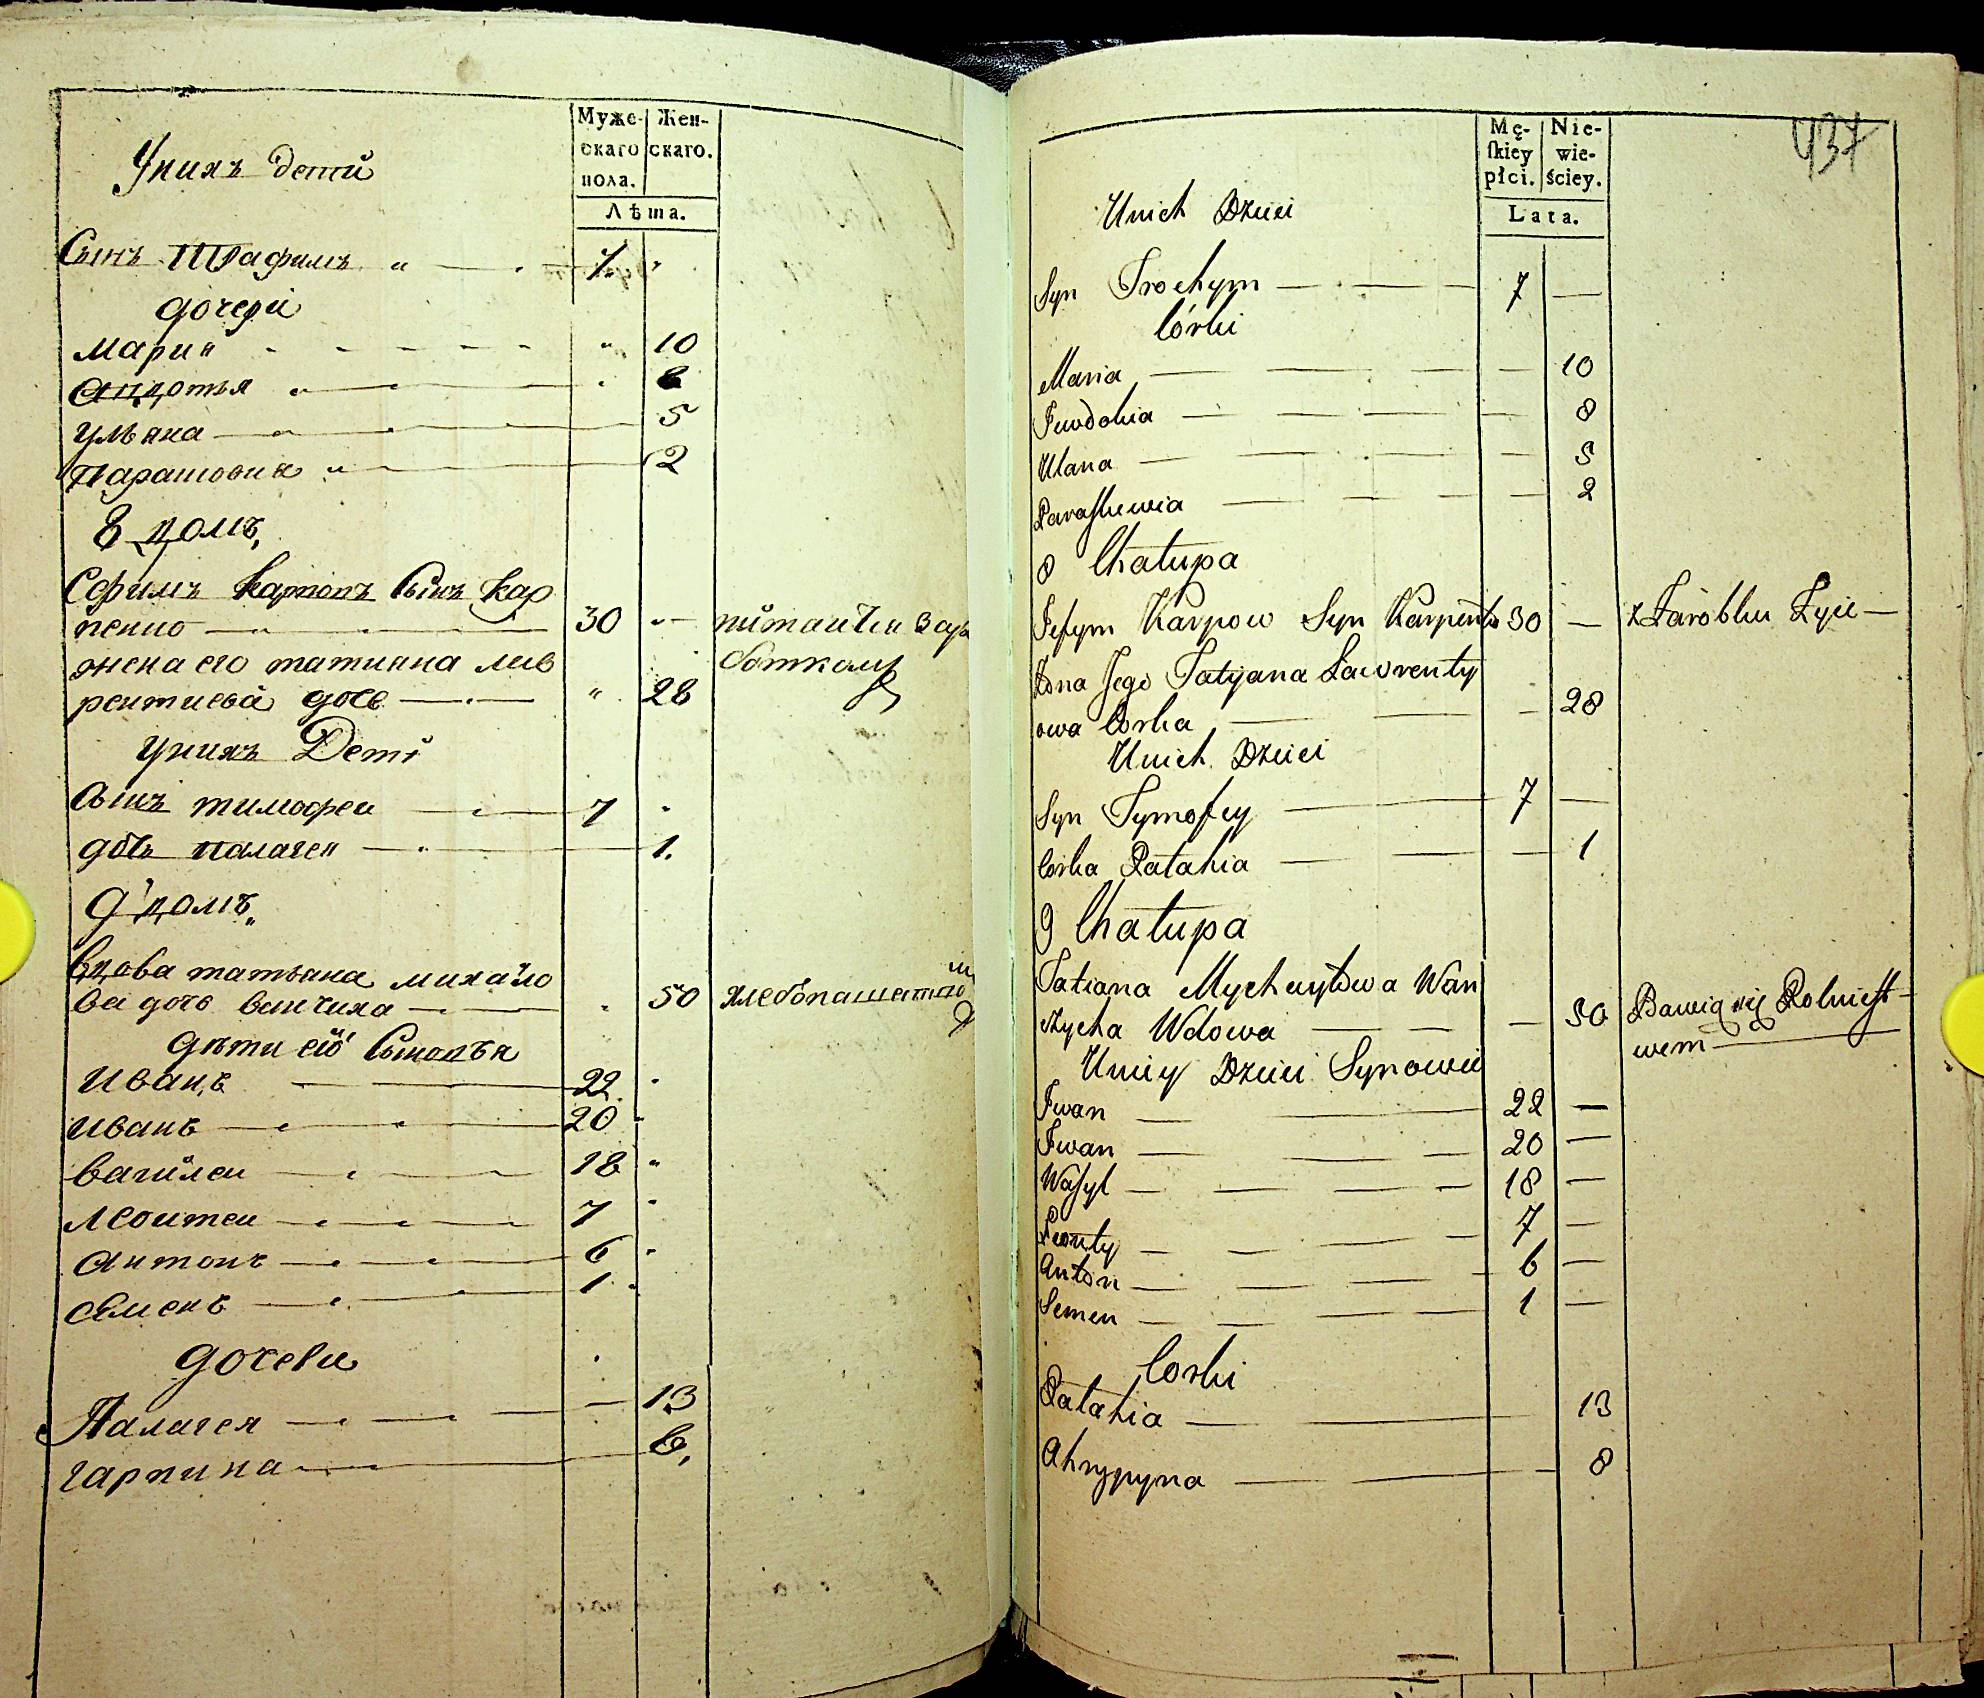 Муже-
скаго
пола.
Жен-
скаго.
Лѣта.
Унихъ дети
Сынъ Трафимъ " 7. "
дочери
Мария " 10
Андотья 8
Ульяна 5
Парасковия 2
8 домъ,
Ефимъ Карповъ Сынъ Кар
пенко 30 питаится Зара
жена его татияна лав боткомъ
рентиева дочь " 28
унихъ Дети
Сынъ тимофеи 7
дочь палагея 1.
9 домъ
вдова татьяна михайло
ва дочь ванчиха 50 хлебопашеством
дети ей Сыновья
Иванъ 22
иванъ 20
василеи 18
леонтеи 7
антонъ 6
семенъ 1
дочери
Палагея 13
гарпина 8,
437
Mę-
skiey
płci.
Nie-
wie-
ściey.
Lata.
Unich Dzieci
Syn Trochym 7
Córki
Maria 10
Iewdokia 8
Ulana 5
Paraskewia 2
8 Chałupa
Jefym Karpow Syn Karpenko 30 z Zarobku Zyie
Zona Jego Tatyana Lawrenty
owa Corka 28
Unich Dzieci
Syn Tymofey 7
Corka Pałahia 1
9 Chałupa
Tatiana Mychayłowa Wan
czycha Wdowa 50 Bawią się Rolnicst
wem
Uniey Dzieci Synowie
Iwan 22
Iwan 20
Wasyl 18
Leonty 7
Anton 6
Semen 1
Corki
Pałahia 13
Ahrypyna 8